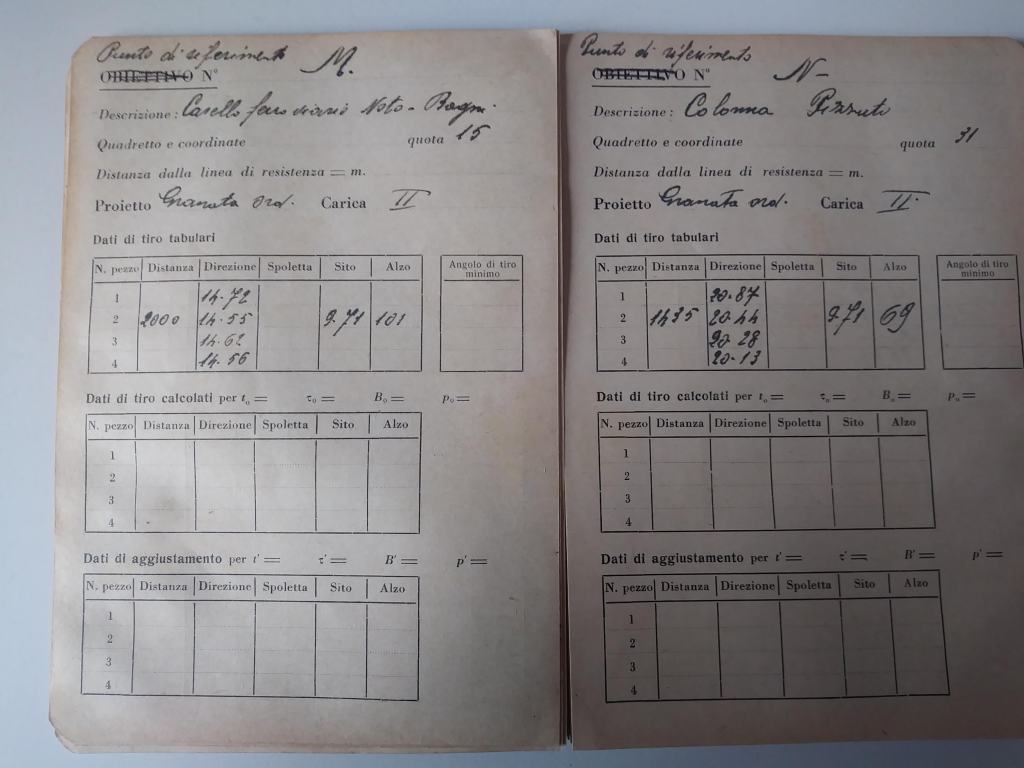 Punto di riferimento
OBIETTIVO N° M.
Descrizione: Casello ferroviario Noto - Bagni
Quadretto e coordinate quota 15
Distanza dalla linea di resistenza = m.
Proietto Granata ord. Carica II
Dati di tiro tabulari
N. pezzo Distanza Direzione Spoletta Sito Alzo Angolo di tiro minimo
1 14.72
2 2000 14.55 9.71 101
3 14.62
4 14.56
Dati di tiro calcolati per t₀ = τ₀ = B₀ = p₀ =
N. pezzo Distanza Direzione Spoletta Sito Alzo
1
2
3
4
Dati di aggiustamento per t' = τ' = B' = p' =
N. pezzo Distanza Direzione Spoletta Sito Alzo
1
2
3
4
Punto di riferimento
OBIETTIVO N° N-
Descrizione: Colonna Pizzuti
Quadretto e coordinate quota 31
Distanza dalla linea di resistenza = m.
Proietto Granata ord. Carica II.
Dati di tiro tabulari
N. pezzo Distanza Direzione Spoletta Sito Alzo Angolo di tiro minimo
1 20.87
2 1435 20.44 9.71 69
3 20.28
4 20.13
Dati di tiro calcolati per t₀ = τ₀ = B₀ = p₀ =
N. pezzo Distanza Direzione Spoletta Sito Alzo
1
2
3
4
Dati di aggiustamento per t' = τ' = B' = p' =
N. pezzo Distanza Direzione Spoletta Sito Alzo
1
2
3
4